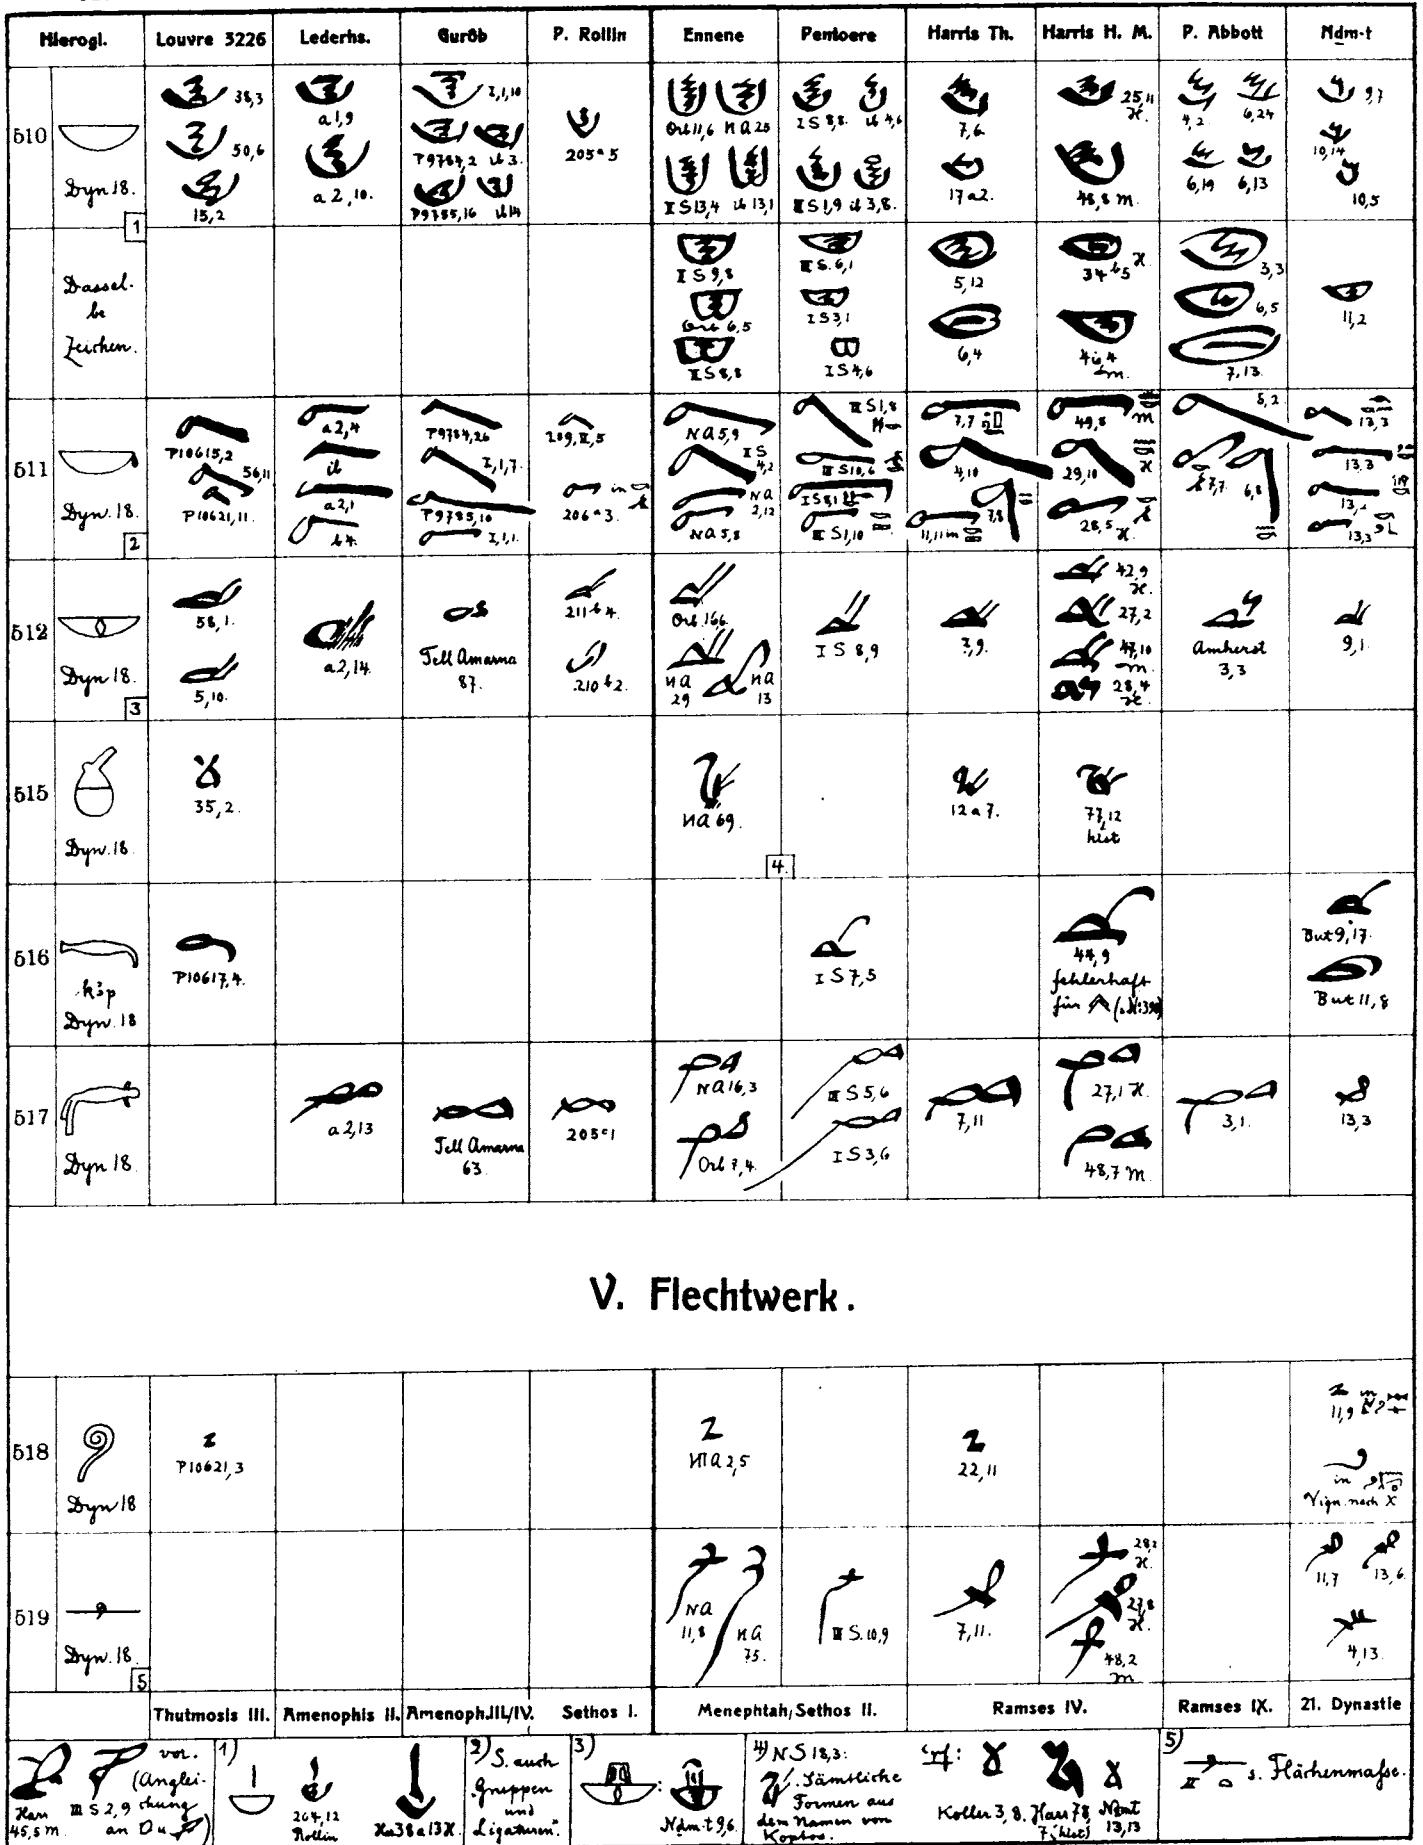 Hierogl. Louvre 3226 Lederhs. Gurôb P. Rollin Ennene Pentoere Harris Th. Harris H. M. P. Abbott Nḏm-t
510
Dyn 18.
1
38,3
50,6
15,2
a 1,9
a 2, 10.
I,1,10
P9784,2 ib 3.
P9785,16 ib 14
205a 5
Orb 11,6 Na 25
I S 13,4 ib 13,1
I S 8,8. ib 4,6
III S 1,9 ib 3,8.
7,6
17 a 2.
25,11
H.
48,8 m.
4,2 6,24
6,19 6,13
9,7
10,14
10,5
Dassel-
be
Zeichen.
I S 9,8
Orb 6,5
I S 8,8
III S. 6,1
I S 3,1
I S 4,6
5,12
6,4
34 b 5 H.
46,4
m.
3,3
6,5
7,13.
11,2
511
Dyn. 18.
2
P10615,2
56,11
P10621,11.
a 2,4
ib
a 2,1
b 4.
P9784,26
I,1,7.
P9785,10
I,1,1.
209,II,5
in
206a 3.
Na 5,9
I S
4,2
Na
2,12
Na 5,8
III S 1,8
III S 10,6
I S 8,1
III S 1,10
7,7
4,10
7,8
11,11 in
49,8 m
29,10 H
28,5 H.
5,2
7,7.
6,8
13,3
13,3
13,3
512
Dyn 18.
3
58,1.
5,10.
a 2,14.
Tell Amarna
87.
211 b 4.
210 b 2.
Orb. 16,6.
Na
29
Na
13
I S 8,9
3,9.
42,9
H.
27,2
47,10
m.
28,4
H.
Amherst
3,3
9,1.
515
Dyn. 18.
35,2.
Na 69.
4.
12 a 7.
77,12
hist
516
k3p
Dyn. 18
P10617,4.
I S 7,5
44,9
fehlerhaft
für
But 9,17.
But 11,8
517
Dyn 18.
a 2,13
Tell Amarna
63.
205c 1
Na 16,3
Orb 7,4.
III S 5,6
I S 3,6
7,11
27,1 H.
48,7 m.
3,1.
13,3
V. Flechtwerk.
518
Dyn 18
P10621,3
Na 2,5
22,11
in
11,9
in
Vign. nach X
519
Dyn. 18.
5
Na
11,8
Na
75.
III S. 10,9
7,11.
28,2
H.
27,8
H.
48,2
m
11,7 13,6
4,13.
Thutmosis III. Amenophis II. Amenoph. III./IV. Sethos I. Menephtah, Sethos II. Ramses IV. Ramses IX. 21. Dynastie
vor.
(Anglei-
chung
an
Harr
45,5 m.
III S 2,9
1)
204,12
Rollin
2) S. auch
"Gruppen
und
Ligaturen".
3)
Nḏm-t 9,6.
4) N S 18,3:
Sämtliche
Formen aus
dem Namen von
Koptos.
Koller 3,8. Harr 78,
7 (hist)
Nḏmt
13,13
5)
s. Flächenmaße.